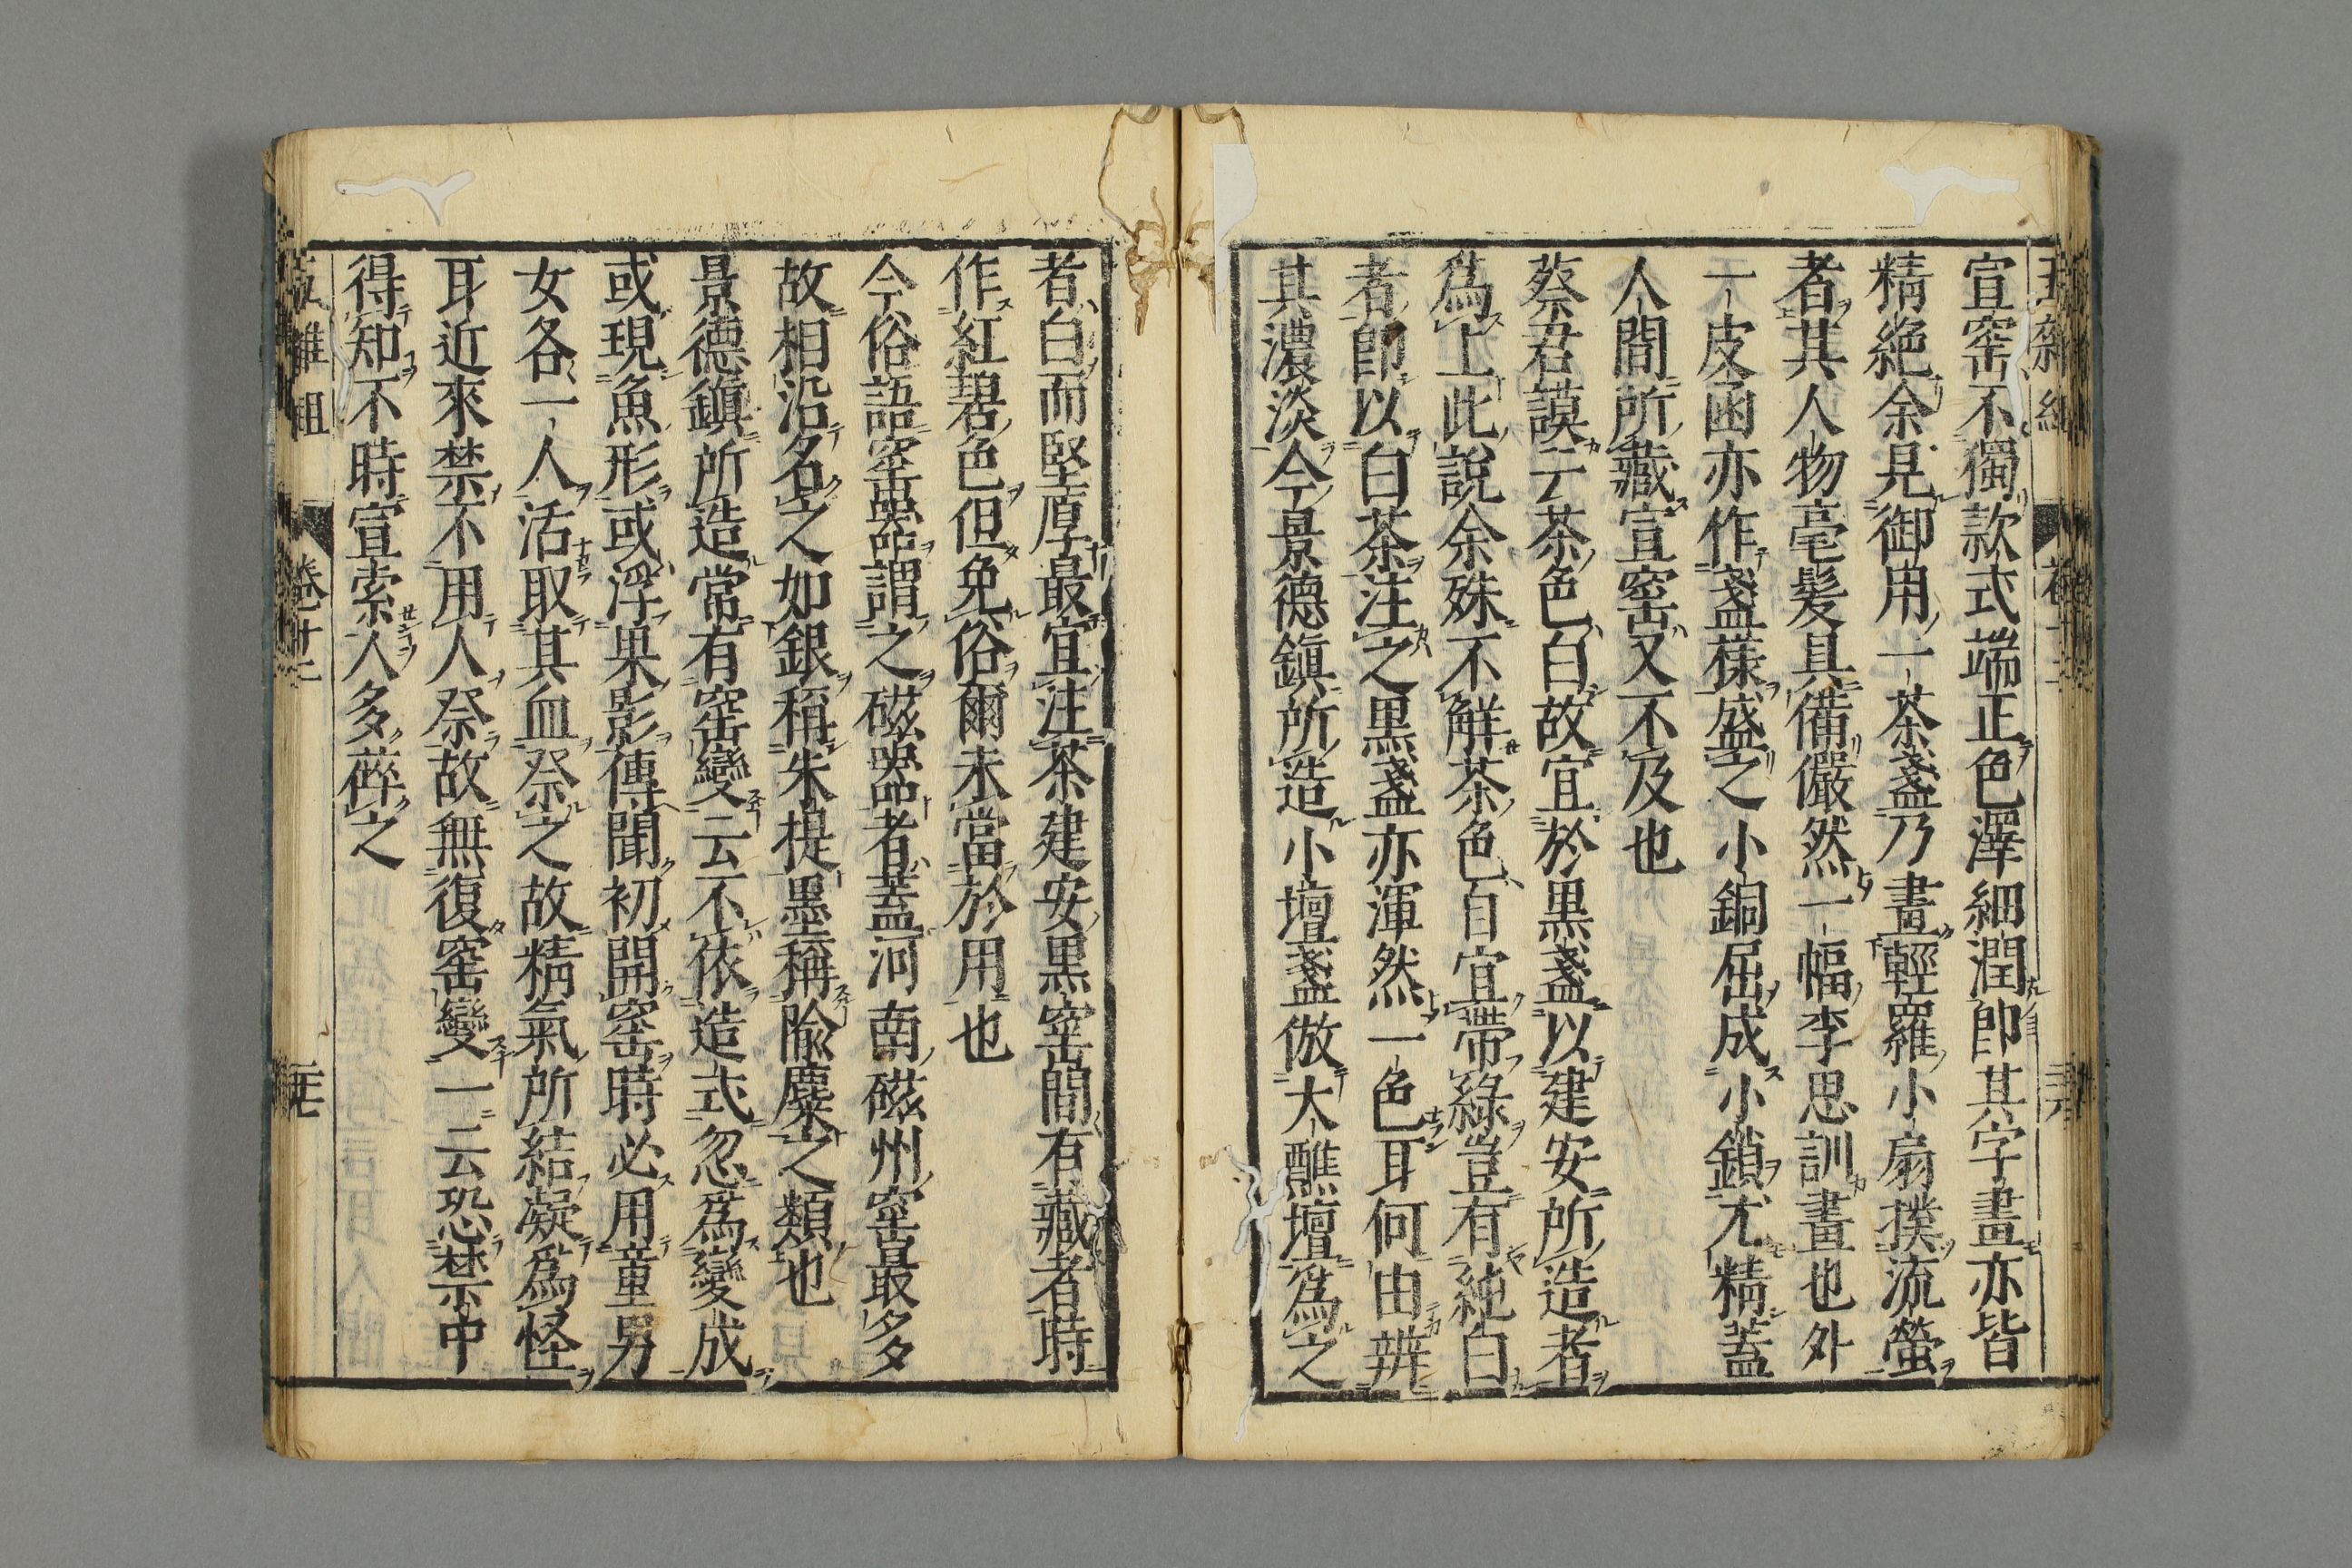 宣窑不獨款式端正色澤細潤即其字畫亦皆
精絶余見御用一茶盞乃畫輕羅小扇撲流螢
者其人物毫髮具備儼然一幅李思訓畫也外
一皮函亦作盞樣盛之小銅屈成小鎖尤精蓋
人間所藏宣窑又不及也
蔡君謨云茶色白故宜於黒盞以建安所造者
爲上此說余殊不解茶色自宜帶綠豈有純白
者即以白茶注之黒盞亦渾然一色耳何由辨
其濃淡今景德鎭所造小壇盞倣大醮壇爲之
者白而堅厚最宜注茶建安黒窑間有藏者時
作紅碧色但免俗爾未當於用也
今俗語窑器謂之磁器者蓋河南磁州窑最多
故相沿名之如銀稱朱提墨稱隃麋之類也
景德鎭所造常有窑變云不依造式忽爲變成
或現魚形或浮果影傳聞初開窑時必用童男
女各一人活取其血祭之故精氣所結凝爲怪
耳近來禁不用人祭故無復窑變一云恐禁中
得知不時宣索人多碎之
雜俎
卷十二